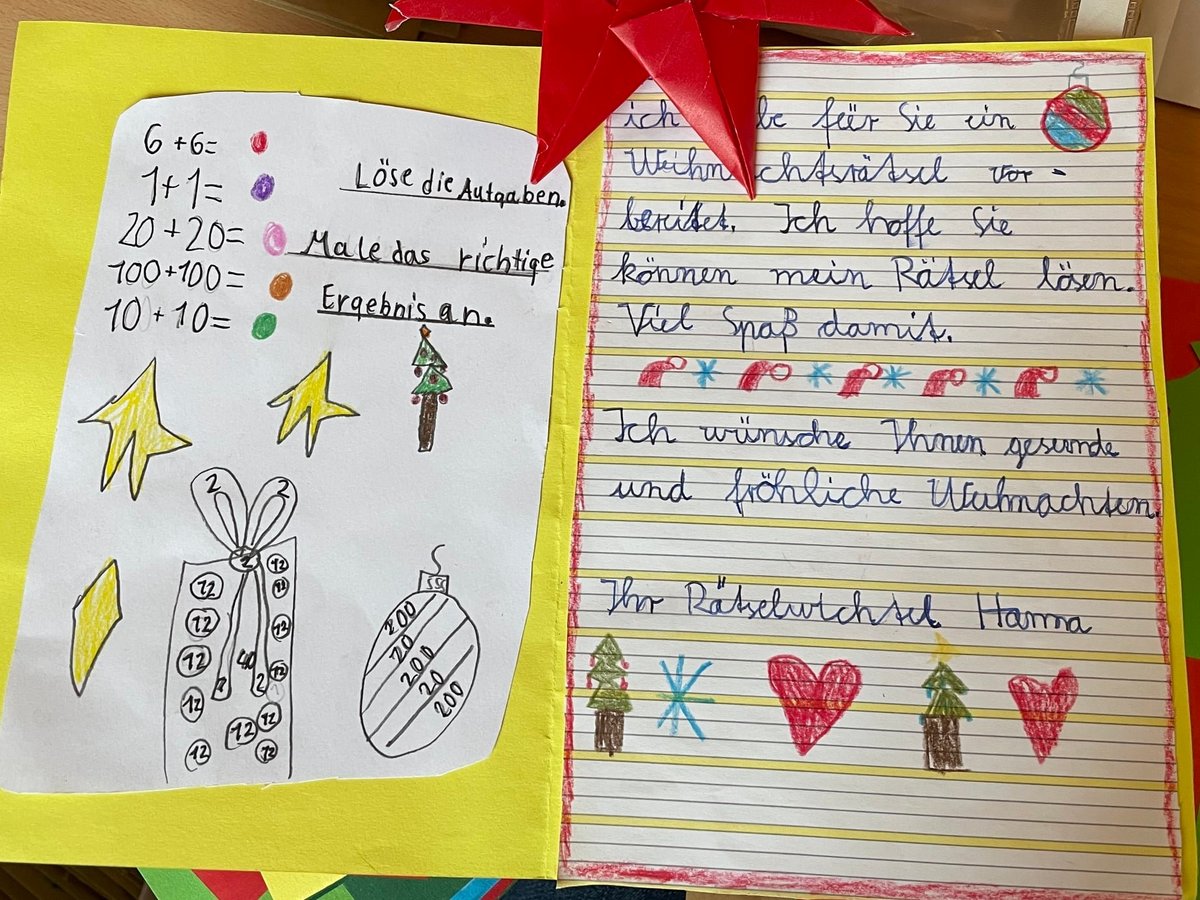 6+6=
1+1=
20+20=
100+100=
10+10=
Löse die Aufgaben.
Male das richtige
Ergebnis an.
2 2
2
12 12
12 12
12 12
12 40 12
2 2
12 12
12 12
12
200
20
200
20
200
ich für Sie ein
Weihnachtsrätsel vor-
bereitet. Ich hoffe Sie
können mein Rätsel lösen.
Viel Spaß damit.
Ich wünsche Ihnen gesunde
und fröhliche Weihnachten.
Ihr Rätselwichtel Hanna